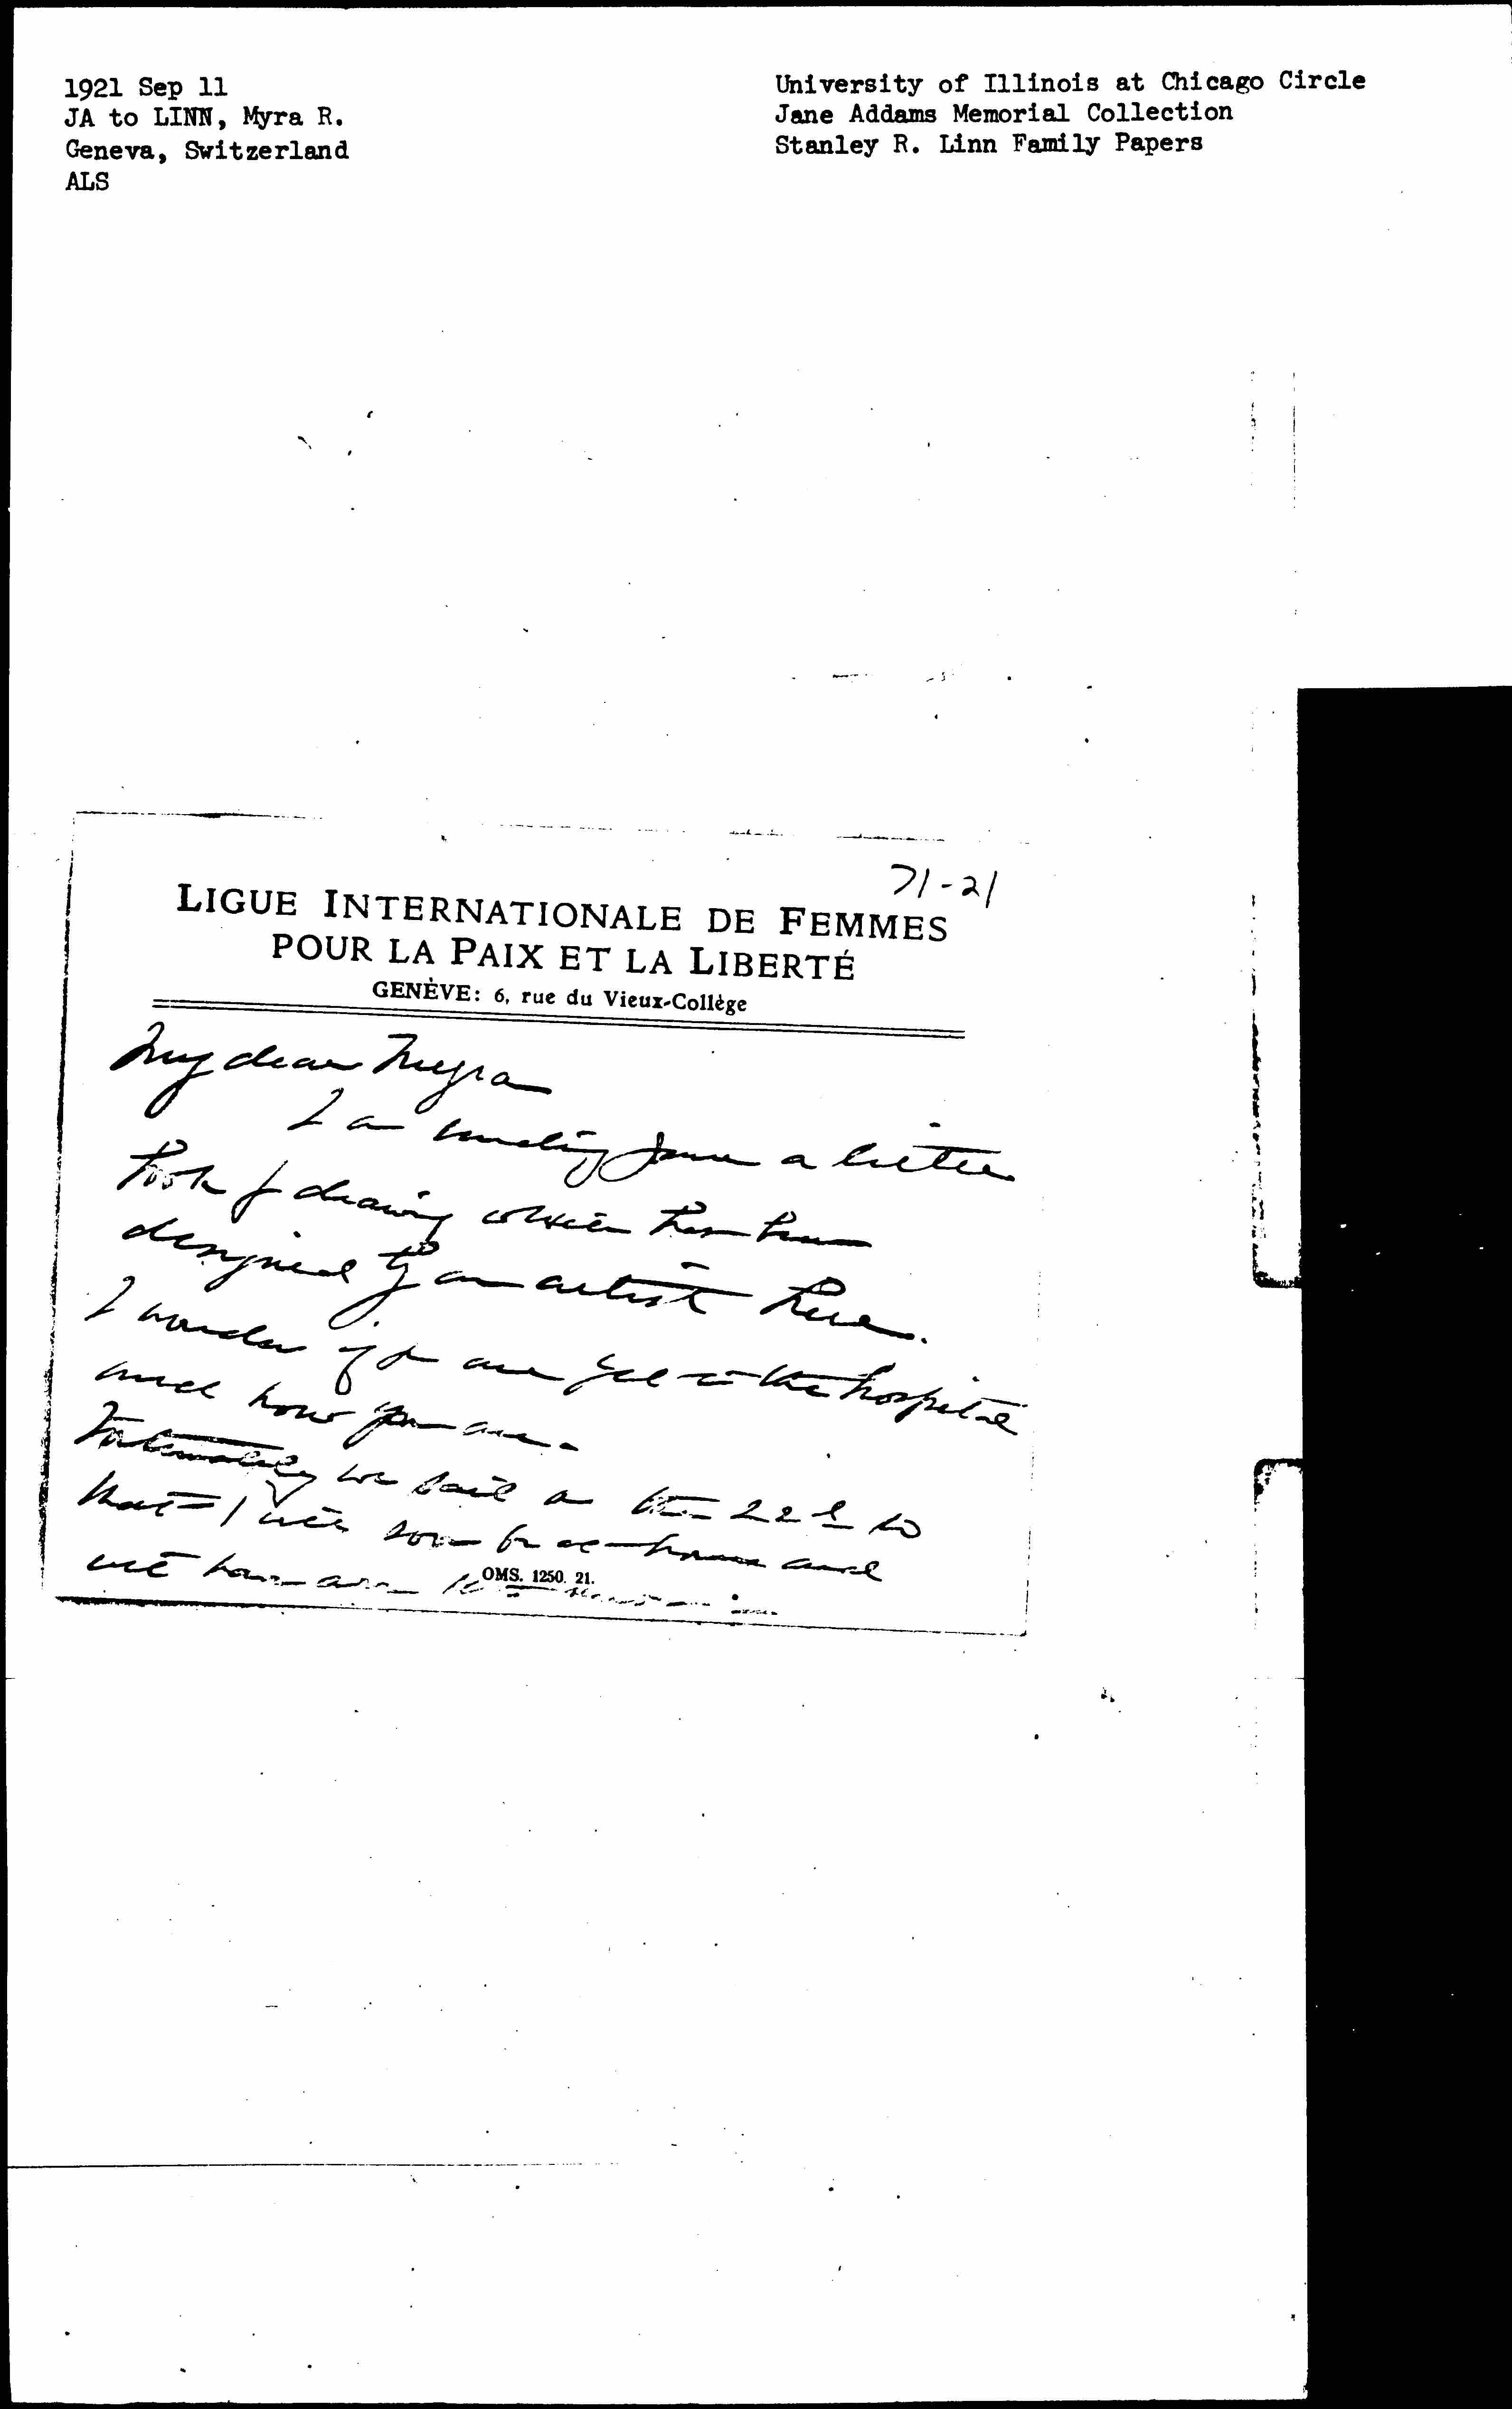 1921 Sep 11
JA to LINN, Myra R.
Geneva, Switzerland
ALS
University of Illinois at Chicago Circle
Jane Addams Memorial Collection
Stanley R. Linn Family Papers
71-21
LIGUE INTERNATIONALE DE FEMMES
POUR LA PAIX ET LA LIBERTÉ
GENÈVE: 6, rue du Vieux-Collège
My dear Myra
I am sending Jane a little
book of drawing which has been
designed by an artist here.
I wonder if you are yet in the hospital
and how you are.
Fortunately we sail on the 22d so
that I will soon be at home and
will have
OMS. 1250. 21.